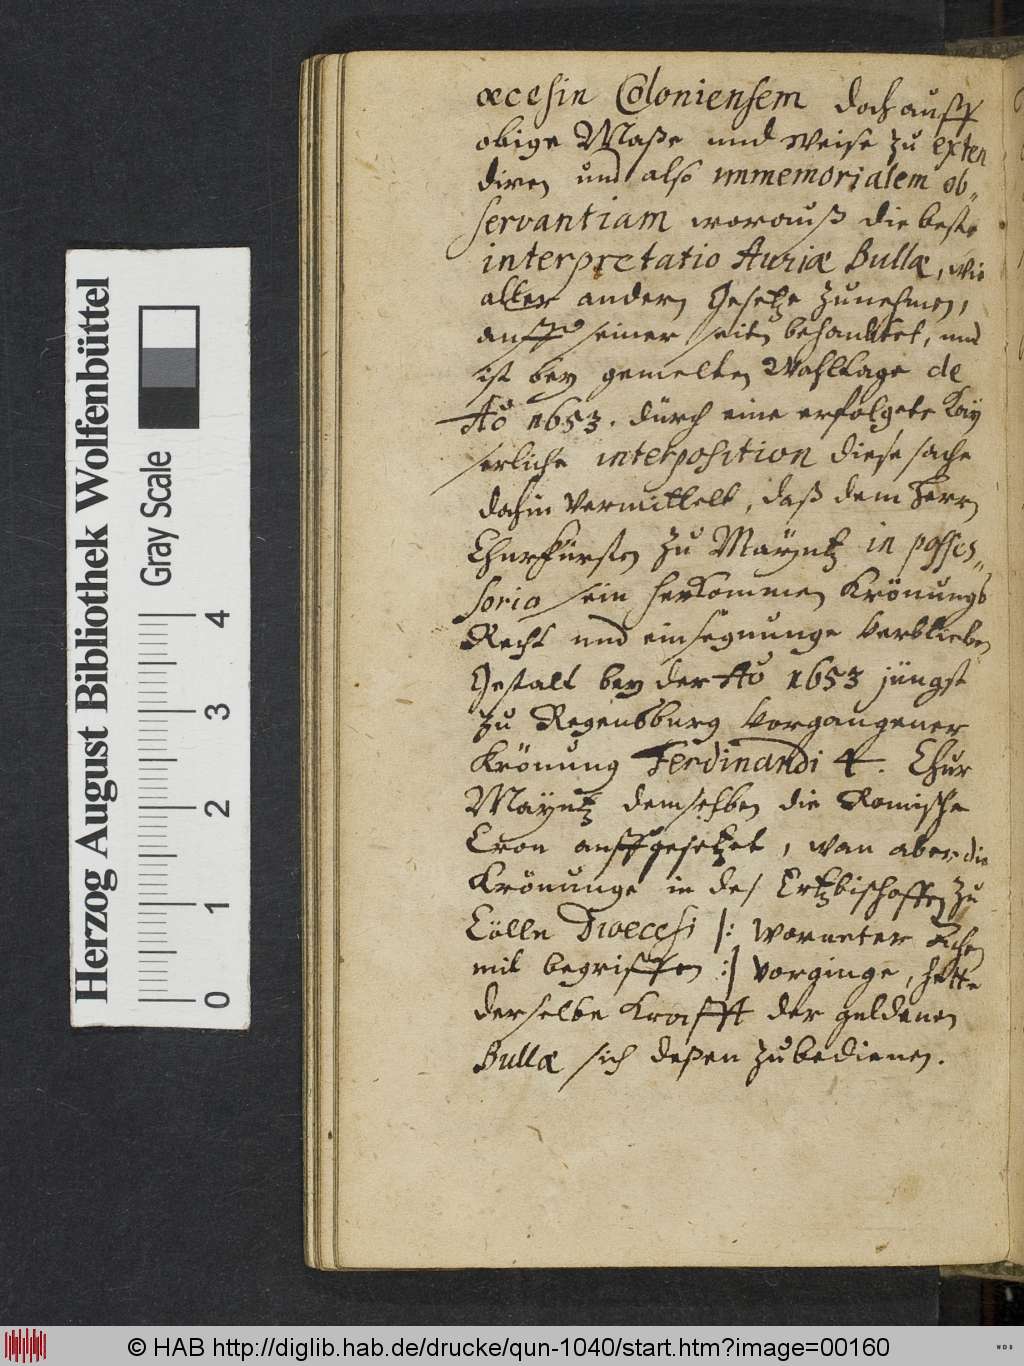 œcesin Coloniensem doch auff
obige Maße und weise zu exten
diren und also immemorialem ob„
servantiam worauß die beste
interpretatio Auriæ Bullæ, wie
aller andern Gesetze zunehmen,
auff seiner seiten behaubtet, und
ist bey gemelten Wahltage de
Aō 1653. durch eine erfolgete Kay
serliche interposition diese sache
dahin vermittelt, daß dem Herrn
Churfürsten zu Mäyntz in posses„
sorio sein herkommen Krönungs
Recht und einsegnunge verblieben
Gestalt bey der Aō 1653 jüngst
zu Regensburg vorgangener
Krönung Ferdinandi 4. Chur
Mäyntz demselben die Römische
Cron auffgesetzet, wan aber die
Krönunge in des Ertzbischoffen zu
Cölln Dioecesi |: worunter Achen
mit begriffen :| vorginge, hette
derselbe Krafft der guldenen
Bullæ sich deßen zubedienen.
Herzog August Bibliothek Wolfenbüttel
Gray Scale
0 1 2 3 4
© HAB http://diglib.hab.de/drucke/qun-1040/start.htm?image=00160